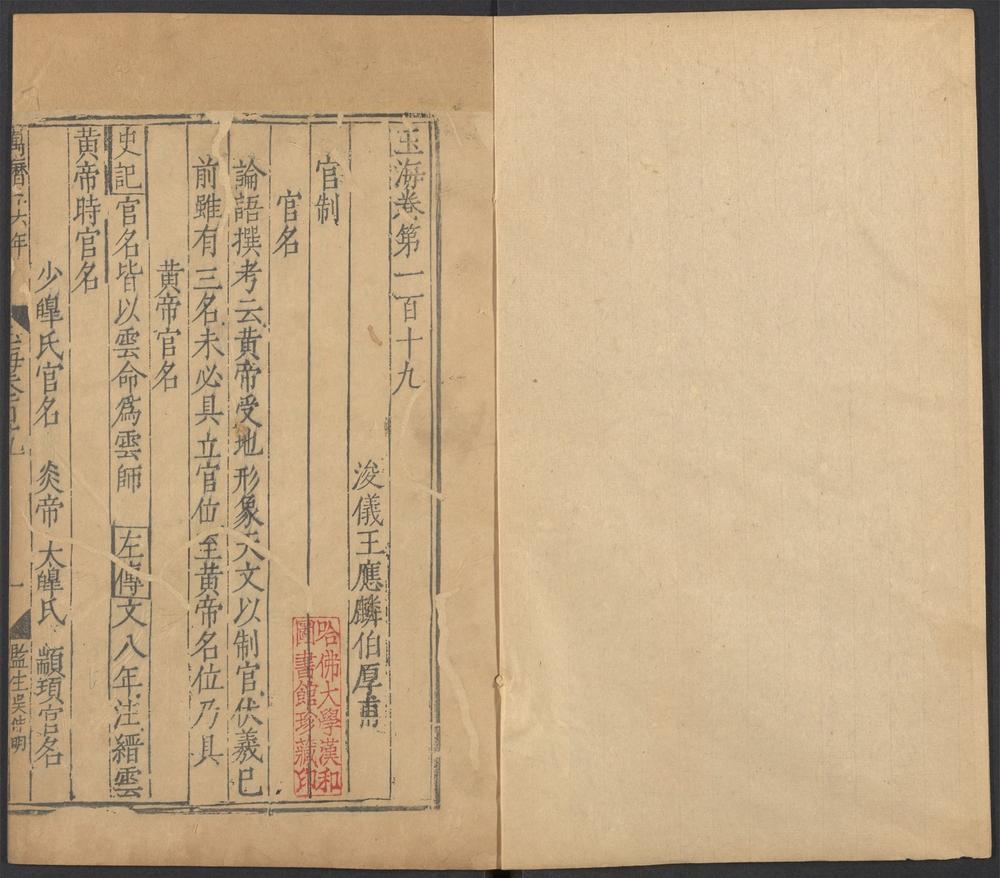 玉海卷第一百十九
浚儀王應麟伯厚甫
官制
官名
論語撰考云黄帝受地形象天文以制官伏羲已
前雖有三名未必具立官位至黄帝名位乃具
黄帝官名
史記官名皆以雲命爲雲師 左傳文八年注縉雲
黄帝時官名
少皥氏官名 炎帝 太皥氏 顓頊官名
萬曆十六年
玉海卷百十九
一
監生吳
明
哈佛大學漢和
圖書館珍藏印